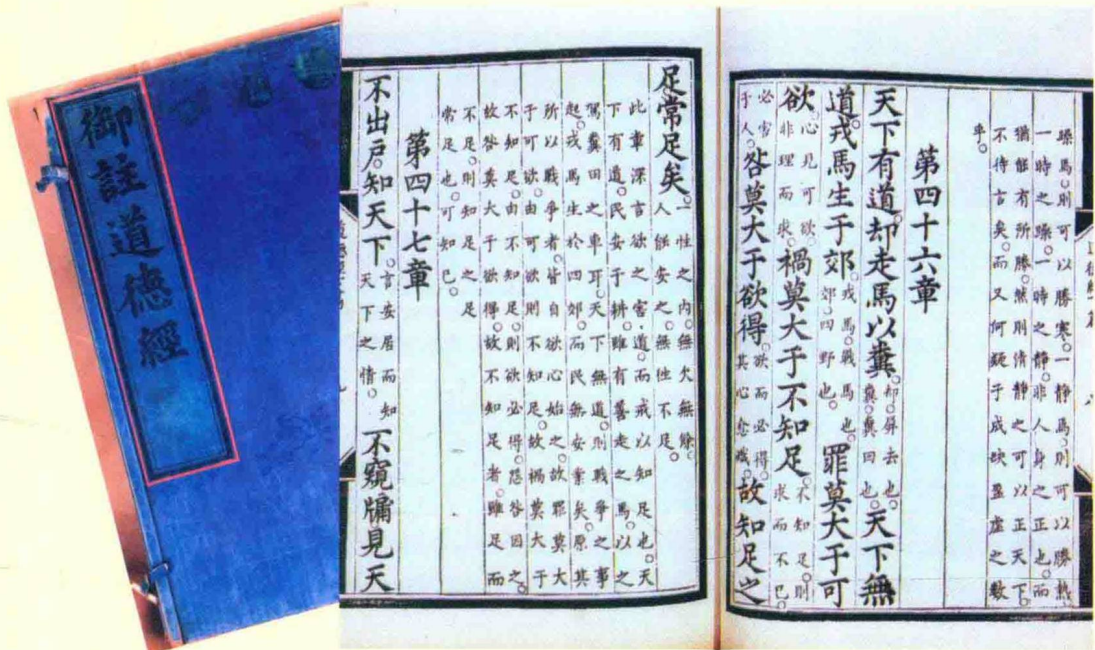 御註道德經
躁焉。則可以勝寒。一靜焉。則可以勝熱。
一時之躁。一時之靜。非人身之正也。而
猶能有所勝。然則清靜之可以正天下。
不待言矣。而又何疑于成缺盈虛之數
乎。
第四十六章
天下有道。却走馬以糞。却。屏去也。糞。糞田也。天下無
道。戎馬生于郊。戎馬。戰馬也。郊。四野也。罪莫大于可
欲。心見可欲。非理而求。禍莫大于不知足。不知足。則求而不已。
必害于人。咎莫大于欲得。欲而必得。其心愈熾。故知足之
足常足矣。一性之內。無欠無餘。人能安之。無往不足。
此章深言欲之害道。而戒以知足也。天
下有道。民安于耕。雖有善走之馬。以之
駕糞田之車耳。天下無道。則戰爭之事
起。戎馬生於四郊。而民無安業矣。原其
所以戰爭者。皆自欲心始之。故罪莫大
于可欲。由可欲則不知足。故禍莫大于
不知足。由不知足。則欲必得。怨咎因之。
故咎莫大于欲得。故不知足者。雖足而
不足。則知足之足
常足也。可知已。
第四十七章
不出戶。知天下。言安居而知天下之情。不窺牖見天